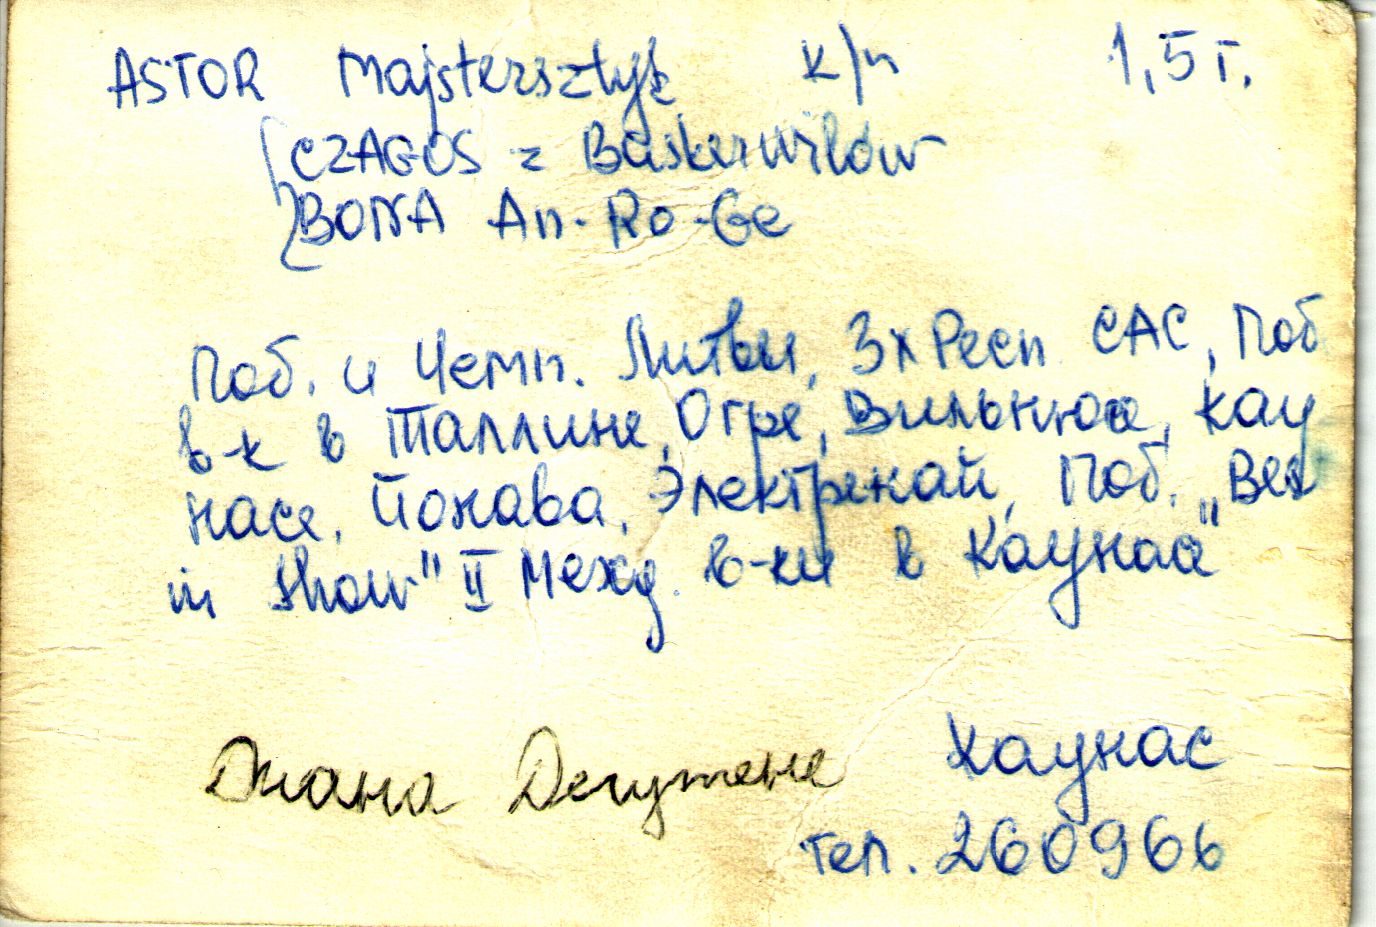 ASTOR Majstersztyk к/п 1,5 г.
CZAGOS z Baskerwilów
BONA An-Ro-Ge
Поб. и Чемп. Литвы, 3х Респ. САС, Поб
в-к в Таллине, Огре, Вильнюсе, Кау
насе, Йонава, Электренай, Поб. „Best
in show" II Межд. в-ки в Каунасе"
Диана Дегутене Каунас
тел. 260966